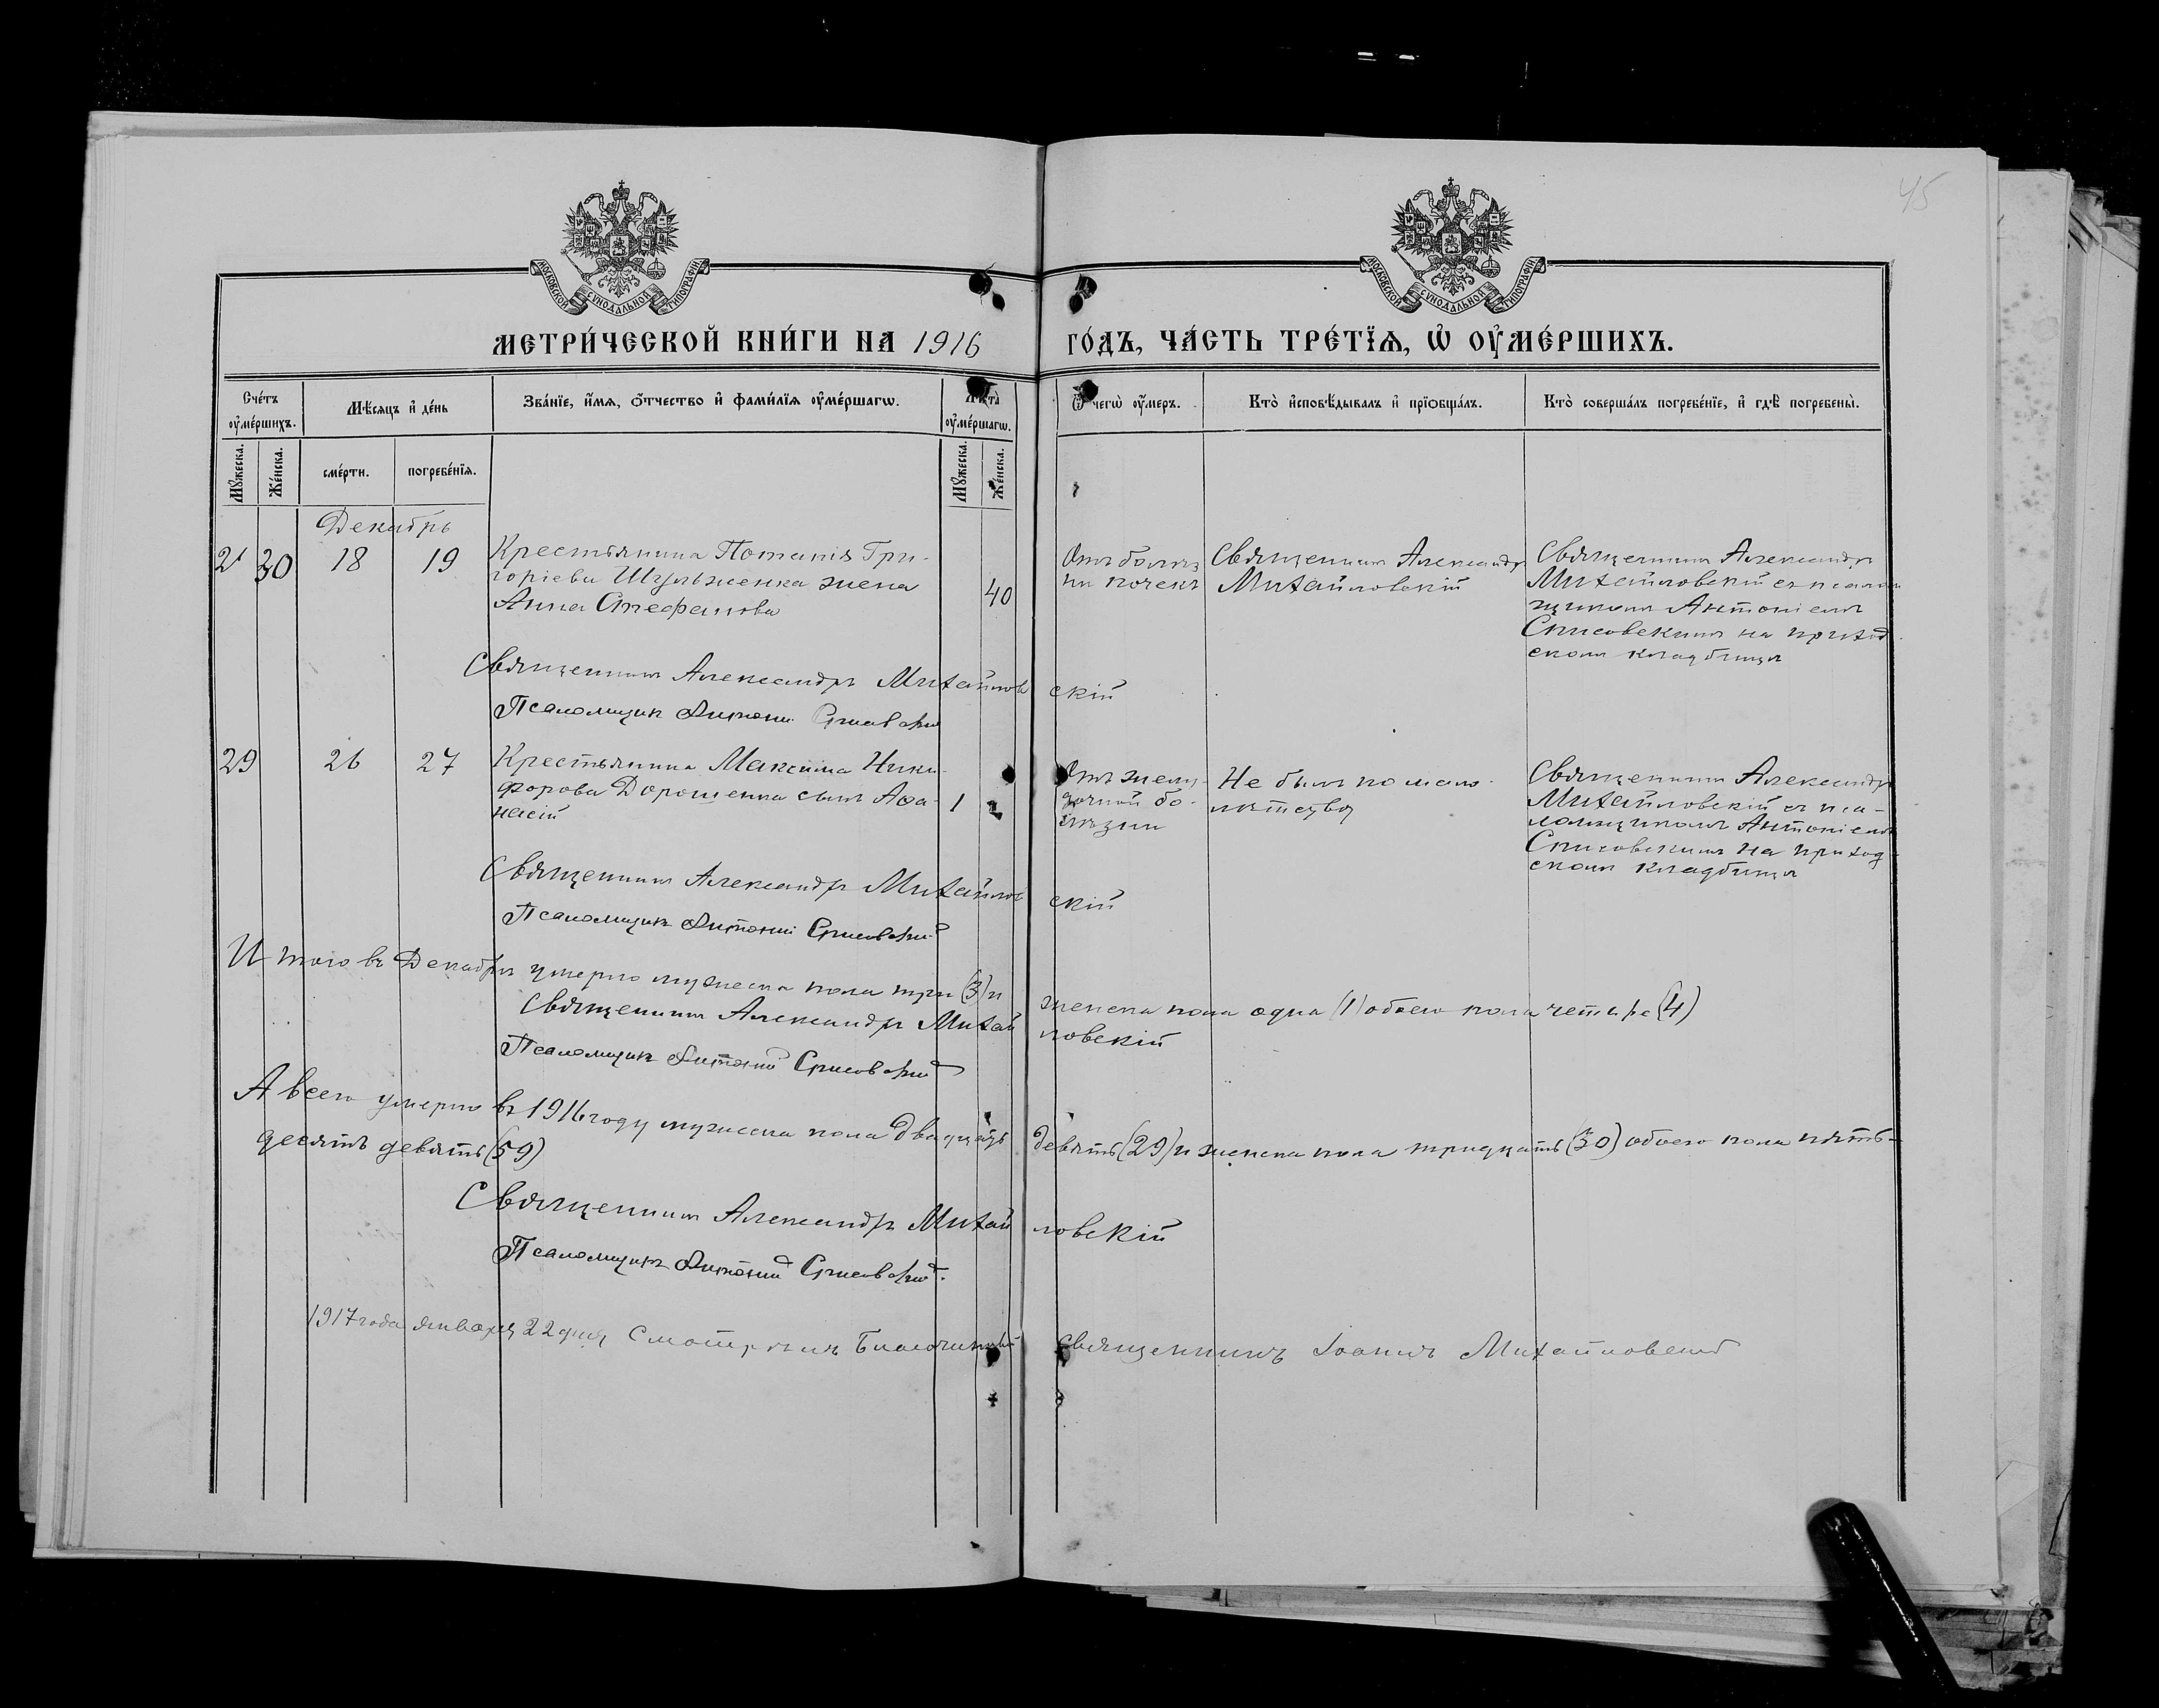 45
МОСКОВСКОЙ СѴНОДАЛЬНОЙ ТИПОГРАФІИ
МОСКОВСКОЙ СѴНОДАЛЬНОЙ ТИПОГРАФІИ
МЕТРИ́ЧЕСКОЙ КНИ́ГИ НА 1916 ГО́ДЪ, ЧА́СТЬ ТРЕ́ТЇѦ, Ѡ҆ ОУ҆МЕ́РШИХЪ.
Сче́тъ оу҆ме́ршихъ.
Мѣ́сѧцъ и҆ де́нь
Зва́нїе, и҆́мѧ, ѻ҆́тчество и҆ фами́лїѧ оу҆ме́ршагѡ.
Лѣ́та̀ оу҆ме́ршагѡ.
Ѿ чегѡ̀ оу҆́меръ.
Кто̀ и҆сповѣ́дывалъ и҆ прїѡбща́лъ.
Кто̀ соверша́лъ погребе́нїе, и҆ гдѣ̀ погребены̀.
Мꙋ́жеска.
Же́нска.
сме́рти.
погребе́нїѧ.
Мꙋ́жеска.
Же́нска.
Декабрь
30 18 19
Крестьянина Потапія Гри-
горіева Шульженка жена
Анна Стефанова
40
Отъ болѣз
ни почекъ
Священникъ Александръ
Михайловскій
Священникъ Александръ
Михайловскій съ псалом
щикомъ Антоніемъ
на приход
скомъ кладбищѣ
Священникъ Александръ Михайловскій
Псаломщикъ Антоній
29 26 27
Крестьянина Максима Ники-
форова Дорошенка сынъ Аѳа-
насій
1
Отъ желу-
дочной бо-
лѣзни
Не былъ по мало-
лѣтству
Священникъ Александръ
Михайловскій съ пса-
ломщикомъ Антоніемъ
на приход-
скомъ кладбищѣ
Священникъ Александръ Михайловскій
Псаломщикъ Антоній
Итого въ Декабрѣ умерло мужеска пола три (3) и женска пола одна (1) обоего пола четыре (4)
Священникъ Александръ Михайловскій
Псаломщикъ Антоній
А всего умерло въ 1916 году мужеска пола двадцать девять (29) и женска пола тридцать (30) обоего пола пять-
десятъ девять (59)
Священникъ Александръ Михайловскій
Псаломщикъ Антоній
1917 года января 22 дня Смотрѣлъ Благочинный Священникъ Іоаннъ Михайловскій